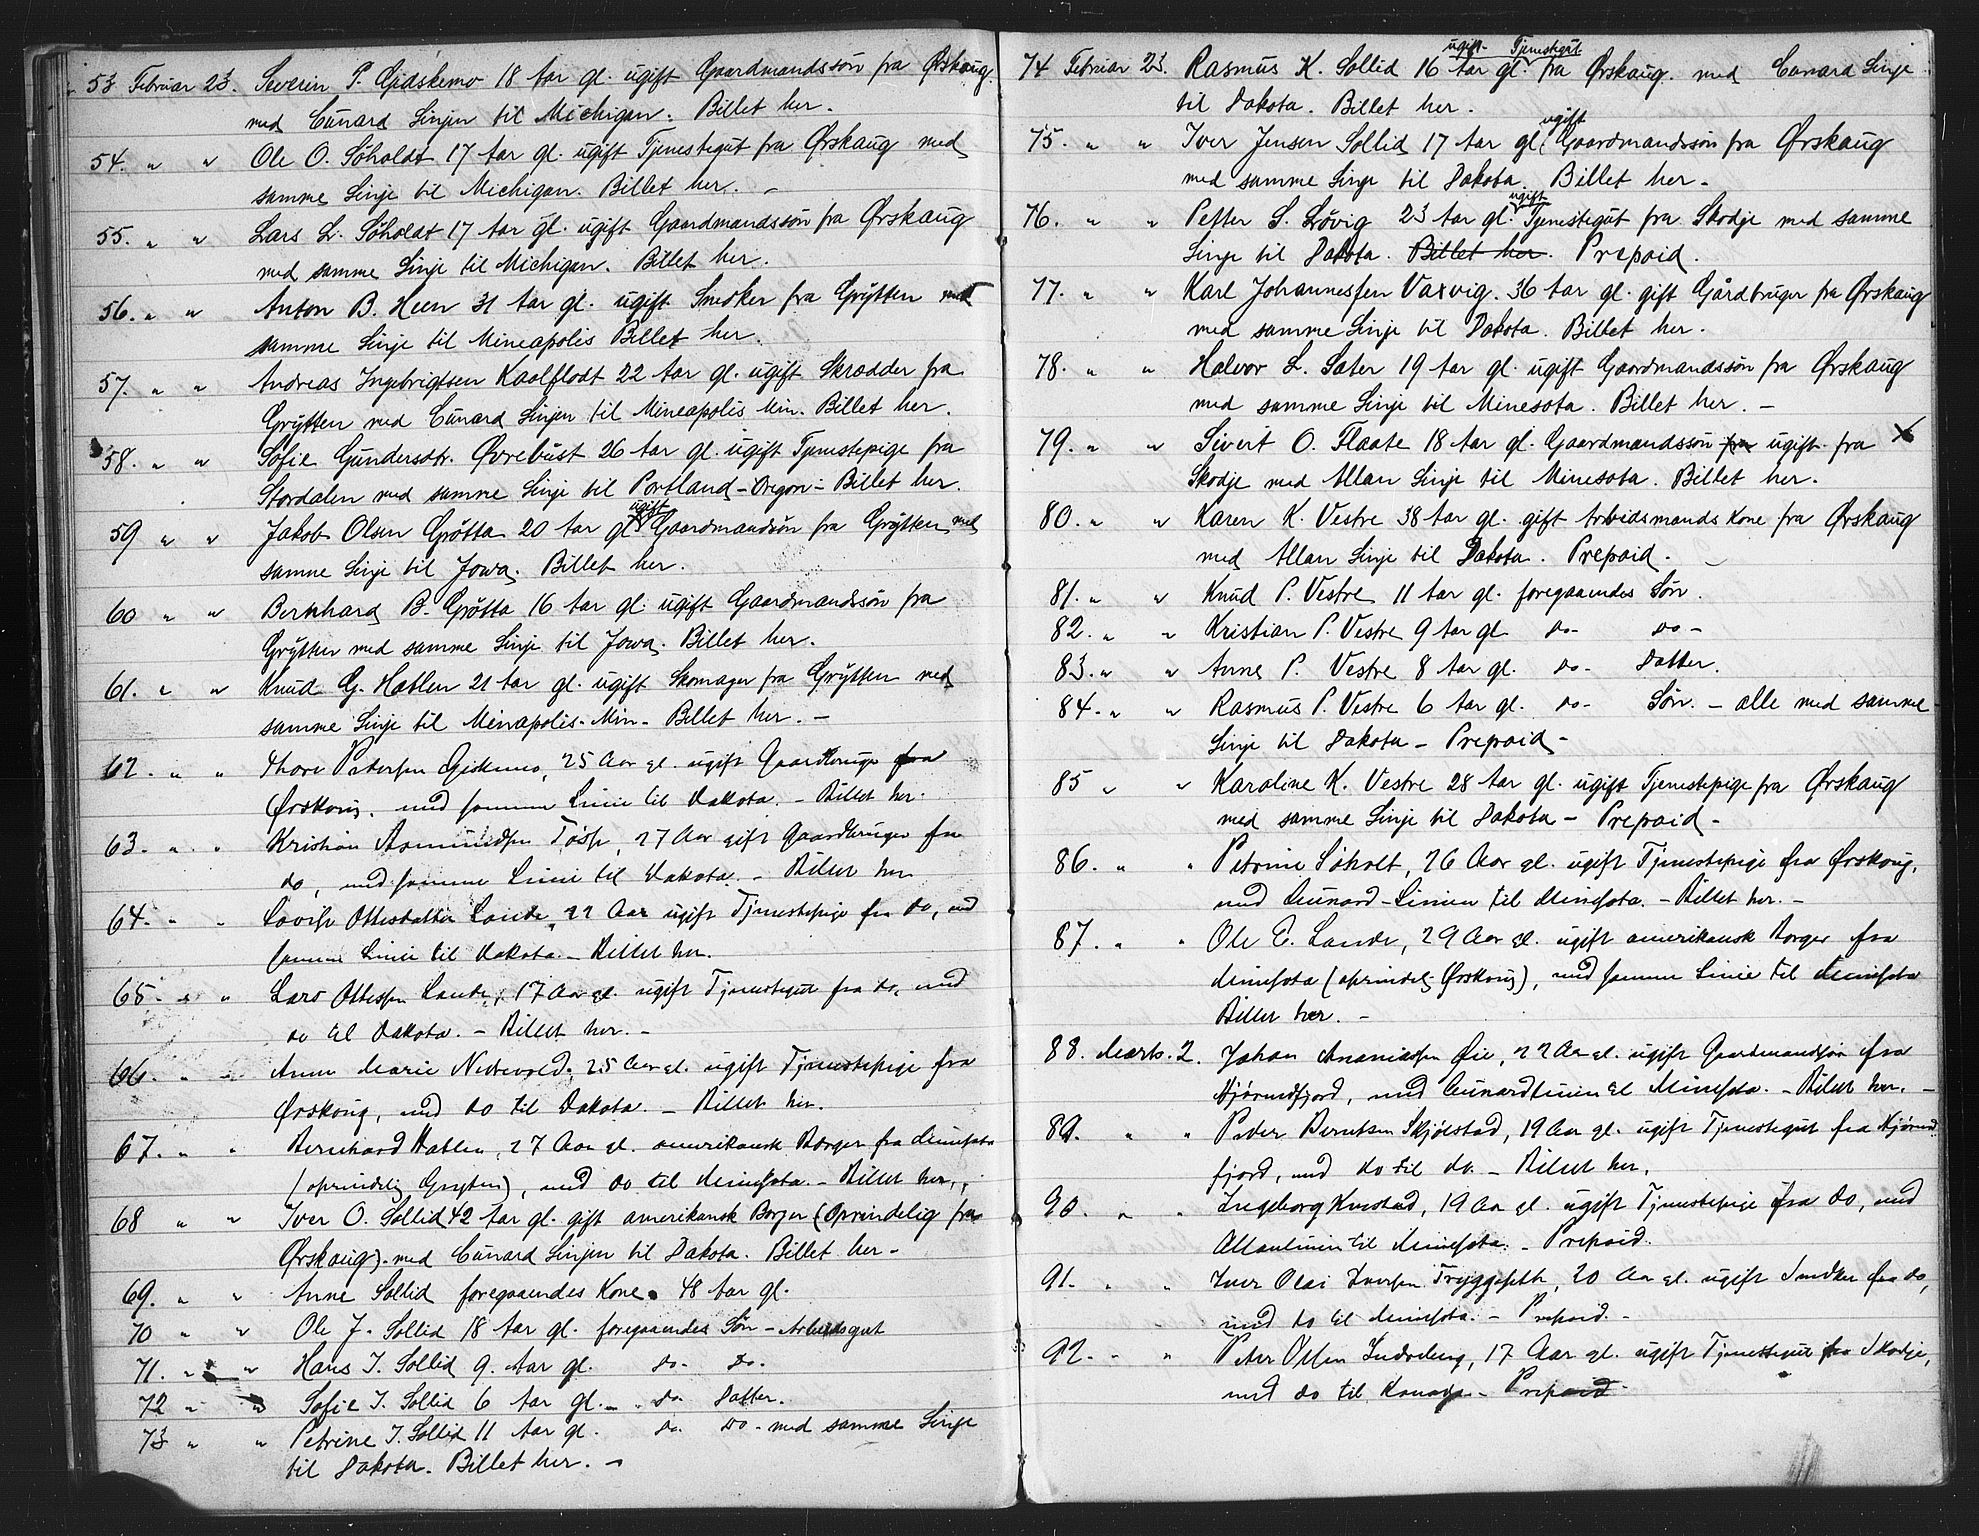 53 Februar 23. Severin P. Gjdskemo 18 Aar gl. ugift Gaardmandssøn fra Ørskaug.
med Cunard Linjen til Michigan. Billet her.
54. " " Ole O. Søholdt 17 Aar gl. ugift Tjenestegut fra Ørskaug med
samme Linje til Michigan. Billet her. –
55. " " Lars L. Søholdt 17 Aar gl. ugift Gaardmandssøn fra Ørskaug
med samme Linje til Michigan. Billet her.
56. " " Anton B. Heen 31 Aar gl. ugift Snedker fra Grytten med
samme Linje til Mineapolis Billet her.
57. " " Andreas Ingebrigtsen Kaolflodt 22 Aar gl. ugift Skrædder fra
Grytten med Cunard Linjen til Mineapolis Min. Billet her.
58. " " Sofie Gundersdtr. Øvrebust 26 Aar gl. ugift Tjenestepige fra
Stordalen med samme Linje til Portland – Oregon – Billet her.
59 " " Jakob Olsen Grøtta 20 Aar gl. ugift Gaardmandsøn fra Grytten med
samme Linje til Jowa. Billet her.
60 " " Bernhard B. Grøtta 16 Aar gl. ugift Gaardmandssøn fra
Grytten med samme Linje til Jowa. Billet her.
61. " " Knud G. Hatlen 21 Aar gl. ugift Skomager fra Grytten med
samme Linje til Minapolis. Min. Billet her. –
62. " " Thore Petersen Gjskemo, 25 Aar gl. ugift Gaardbruger fra
Ørskoug, med samme Linie til Dakota. – Billet her.
63. " " Kristian Asmundsen, 27 Aar gift Gaardbruger fra
do, med samme Linie til Dakota. – Billet her
64. " " Lovise Ottesdatter Lande, 22 Aar ugift Tjenestepige fra do, med
samme Linie til Dakota. – Billet her.
65. " " Lars Ottesen Lande, 17 Aar gl. ugift Tjenestegut fra do, med
do til Dakota. – Billet her. –
66. " " Anne Marie Nedrevold, 25 Aar gl. ugift Tjenestepige fra
Ørskoug, med do til Dakota. – Billet her.
67. " " Bernhard Hatlen, 27 Aar gl. amerikansk Borger fra Minesota
(oprindelig Grytten), med do til Minesota. – Billet her.
68 " " Iver O. Sollid 42 Aar gl. gift amerikansk Borger (oprindelig fra
Ørskaug) med Cunard Linjen til Dakota. Billet her –
69. " " Anne Sollid foregaaendes Kone. 48 Aar gl.
70 " " Ole J. Sollid 18 Aar gl. foregaaendes Søn – Arbeidsgut
71. " " Hans J. Sollid 9. Aar gl. do. do.
72 " " Sofie J. Sollid 6 Aar gl. – do Datter.
73 " " Petrine J. Sollid 11 Aar gl. do. do – med samme Linje
til Dakota. Billet her. –
ugift Tjenestegut.
74 Februar 23. Rasmus K. Sollid 16 Aar gl. fra Ørskaug. med Cunard Linje
til Dakota. Billet her.
75. " " Iver Jensen Sollid 17 Aar gl. ugift Gaardmandssøn fra Ørskaug
med samme Linje til Dakota. Billet her.
76. " " Petter S. Løvig 23 Aar gl. ugift Tjenestegut fra Skodje med samme
Linje til Dakota. Billet her. Prepaid.
77. " " Karl Johannessen Vaxvig. 36 Aar gl. gift Gårdbruger fra Ørskaug
med samme Linje til Dakota. Billet her.
78. " " Halvor L. Sæter 19 Aar gl. ugift Gaardmandssøn fra Ørskaug
med samme Linje til Minesota. Billet her. –
79. " " Sivert O. Flaate 18 Aar gl. Gaardmandssøn fra ugift fra X
Skodje med Allan Linje til Minesota. Billet her.
80. " " Karen K. Vestre 38 Aar gl. gift Arbeidsmands Kone fra Ørskaug
med Allan Linje til Dakota. Prepaid.
81. " " Knud P. Vestre 11 Aar gl. foregaaendes Søn.
82. " " Kristian P. Vestre 9 Aar gl. do – do –
83. " " Anne P. Vestre 8 Aar gl. do – Datter.
84. " " Rasmus P. Vestre 6 Aar gl. do – Søn. – alle med samme
Linje til Dakota – Prepaid –
85 " " Karoline K. Vestre 28 Aar gl. ugift Tjenestepige fra Ørskaug
med samme Linje til Dakota – Prepaid –
86. " " Petrine Søholt, 26 Aar gl. ugift Tjenestepige fra Ørskoug,
med Cunard-Linien til Minesota. – Billet her. –
87. " " Ole E. Lande, 29 Aar gl. ugift amerikansk Borger fra
Minesota (oprindelig Ørskoug), med samme Linie til Minesota
Billet her. –
88. Marts. 2. Johan Ananiassen Øie, 22 Aar gl. ugift Gaardmandssøn fra
Hjørundfjord, med Cunardlinien til Minesota. – Billet her. –
89. " " Peder Berntsen Skjølstad, 19 Aar gl. ugift Tjenestegut fra Hjørund
fjord, med do til do. – Billet her.
90. " " Ingeborg Knestad, 19 Aar gl. ugift Tjenestepige fra do, med
Allanlinien til Minesota. – Prepaid.
91. " " Iver Olai Iversen Tryggestth, 20 Aar gl. ugift Snedker fra do,
med do til Minesota. – Prepaid. –
92. " " Peter Olsen Indreberg, 17 Aar gl. ugift Tjenestegut fra Skodje,
med do til Kanada – Prepaid –